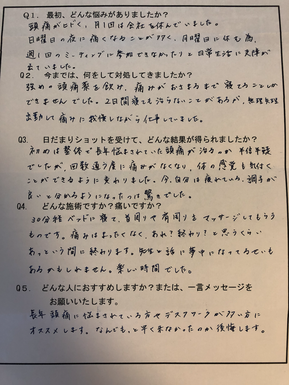 Q1. 最初、どんな悩みがありましたか?
頭痛がひどく、月1回は会社を休んでいました。
日曜日の夜に痛くなることが多く、月曜日には
週1回のミーティングに参加できなかったりと日常生活に支障が
出ていました。
Q2. 今までは、何をして対処してきましたか?
強めの頭痛薬を飲み、痛みがおさまるまで寝ることしか
できませんでした。2日間寝ても治らないことがあるが、無理矢理
出勤して痛みに我慢しながら仕事していました。
Q3. 日だまりショットを受けて、どんな結果が得られましたか?
初めは整体で長年悩まされていた頭痛が治るのか半信半疑
でしたが、回数通う度に痛みがなくなり、体の感覚も気付く
ことができるように変わりました。今、自分は疲れている、調子が
良いと分かるようになったのは驚きでした。
Q4. どんな施術ですか?痛いですか?
30分程ベッドに寝て、首周りや肩周りをマッサージしてもらう
ものです。痛みはまったくなく、あれ?終わり?と思うくらい
あっという間に終わります。先生と話に夢中になってるせいも
あるかもしれません。楽しい時間でした。
Q5. どんな人におすすめしますか?または、一言メッセージを
お願いいたします。
長年頭痛に悩まされている方やデスクワークが多い方に
オススメします。なんでもっと早く来なかったのか後悔します。